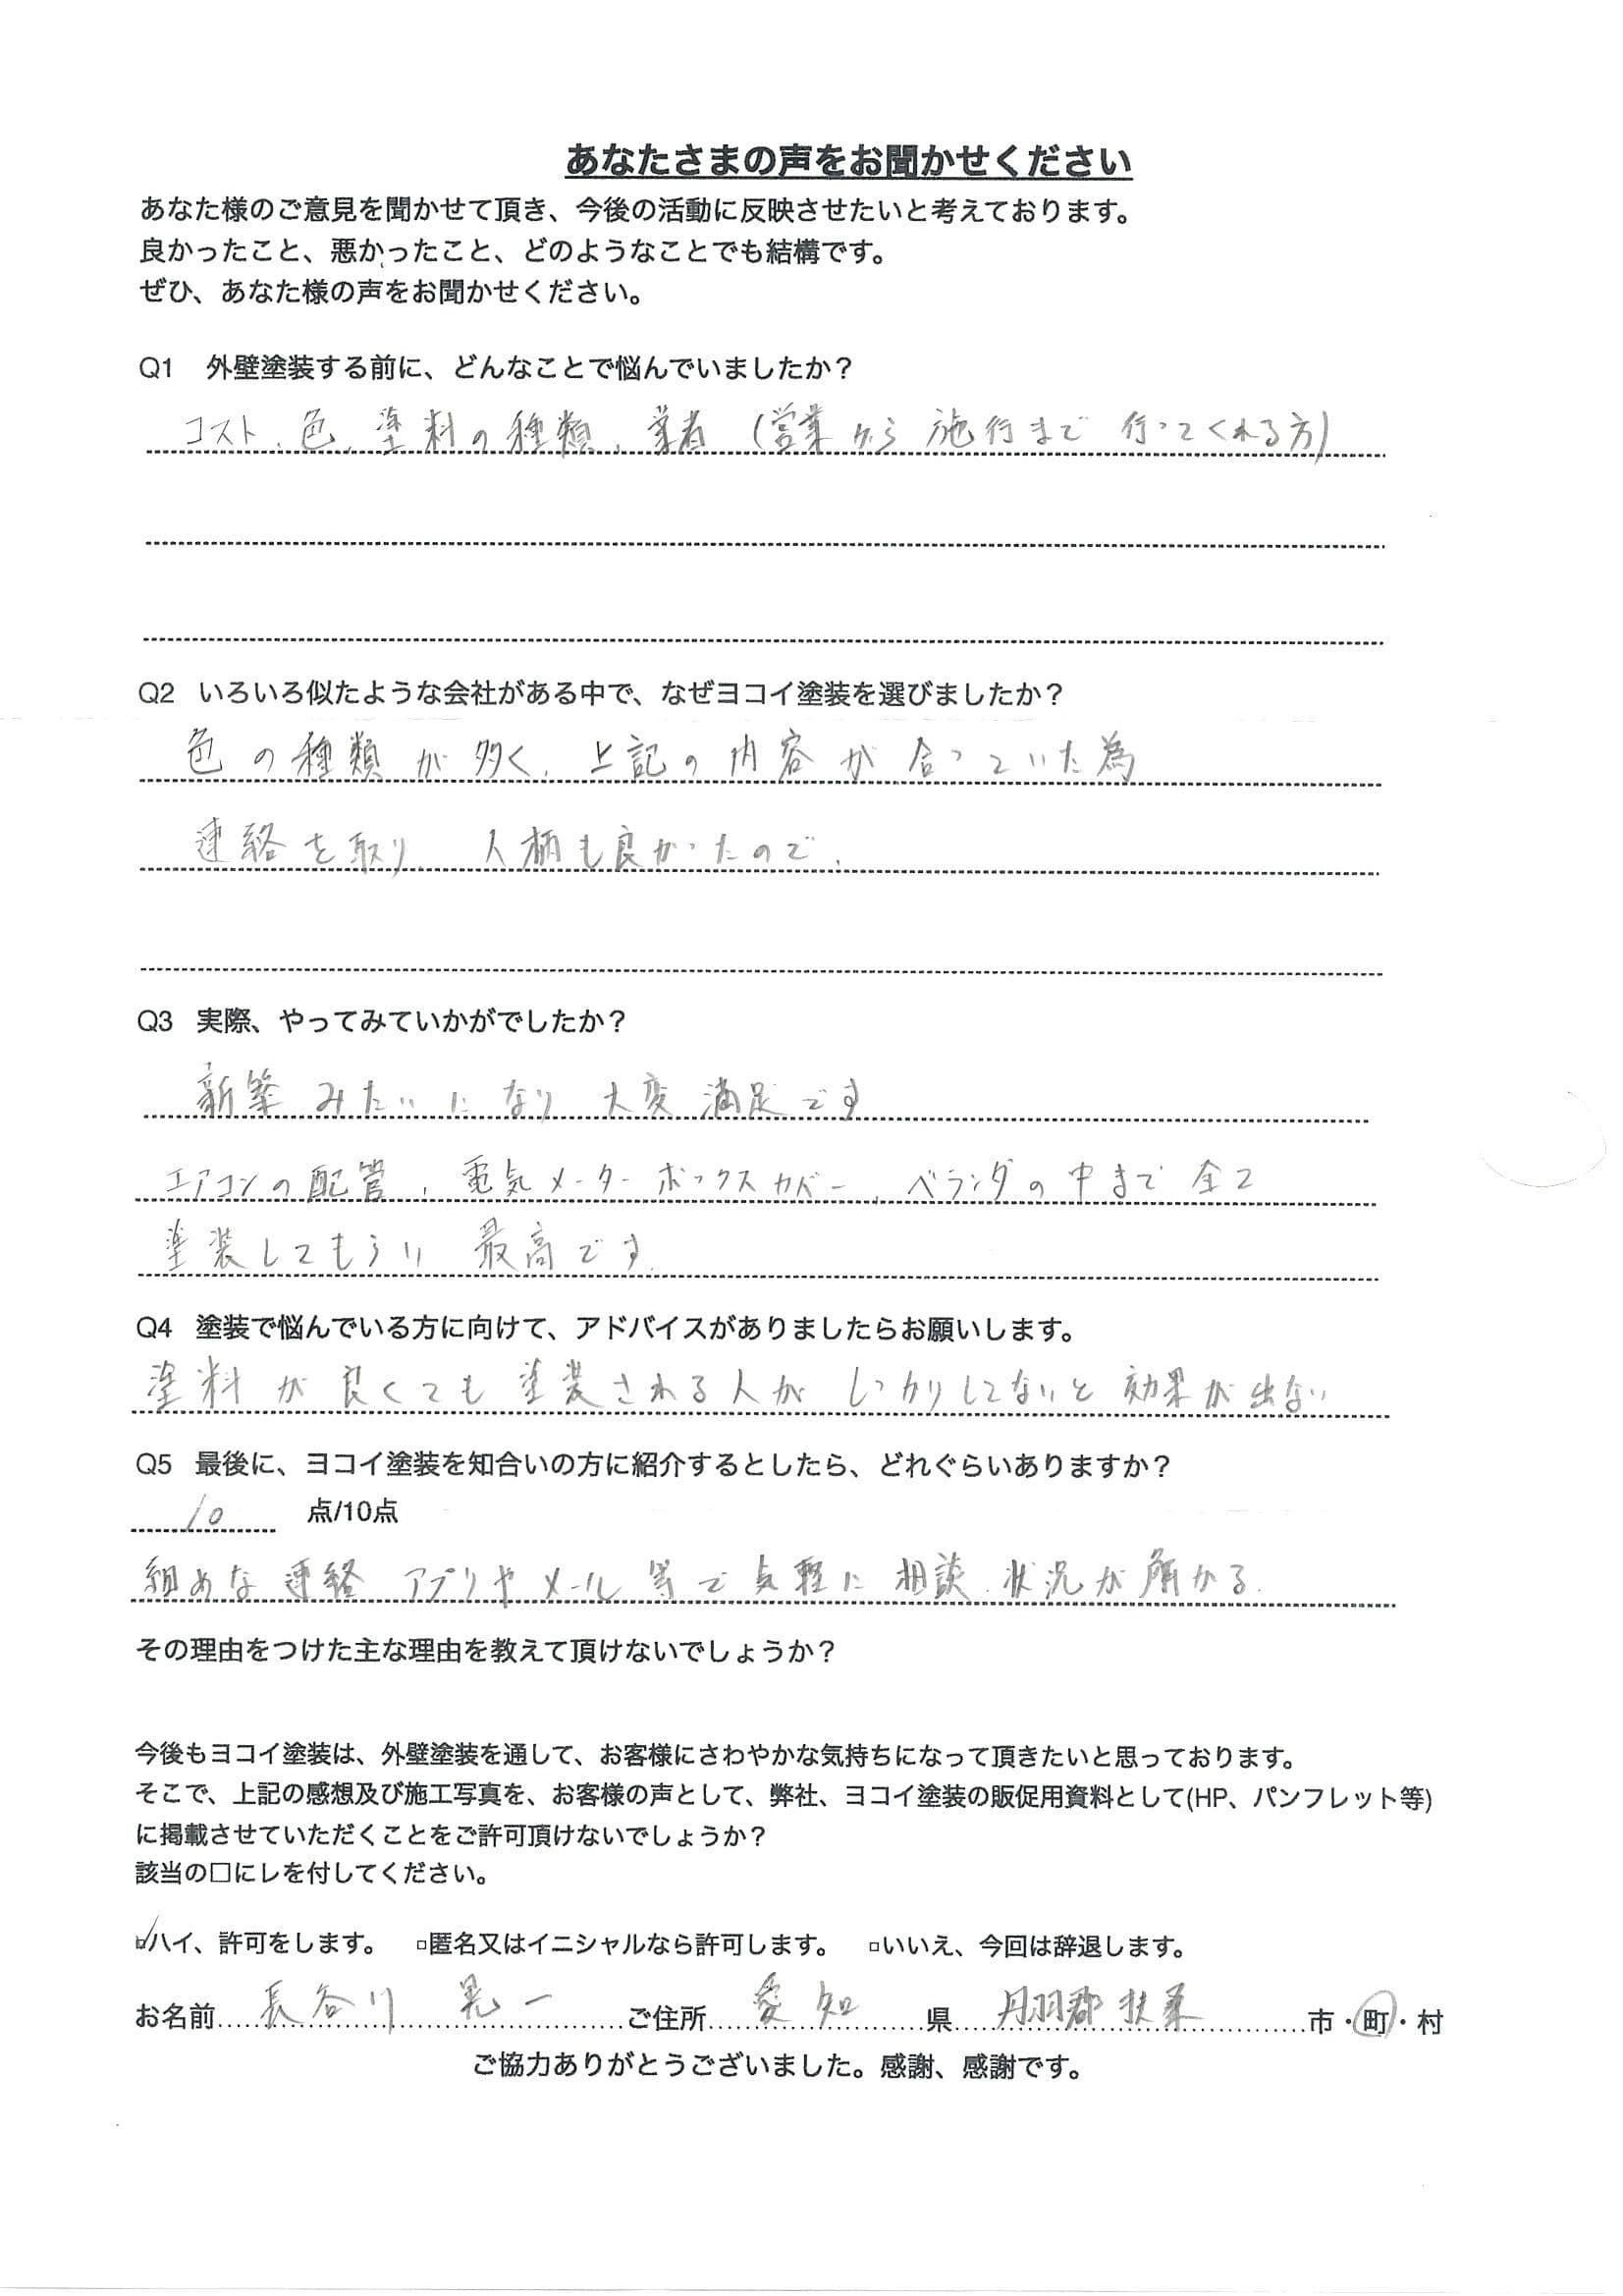 あなたさまの声をお聞かせください
あなた様のご意見を聞かせて頂き、今後の活動に反映させたいと考えております。
良かったこと、悪かったこと、どのようなことでも結構です。
ぜひ、あなた様の声をお聞かせください。
Q1 外壁塗装する前に、どんなことで悩んでいましたか？
コスト、色、塗料の種類、業者（営業から施行まで行ってくれる方）
Q2 いろいろ似たような会社がある中で、なぜヨコイ塗装を選びましたか？
色の種類が多く、上記の内容が合っていた為
連絡を取り、人柄も良かったので、
Q3 実際、やってみていかがでしたか？
新築みたいになり大変満足です
エアコンの配管、電気メーターボックスカバー、ベランダの中まで全て
塗装してもらい最高です。
Q4 塗装で悩んでいる方に向けて、アドバイスがありましたらお願いします。
塗料が良くても塗装される人がしっかりしてないと効果が出ない
Q5 最後に、ヨコイ塗装を知合いの方に紹介するとしたら、どれぐらいありますか？
10 点/10点
細めな連絡 アプリやメール等で気軽に相談、状況が解かる。
その理由をつけた主な理由を教えて頂けないでしょうか？
今後もヨコイ塗装は、外壁塗装を通して、お客様にさわやかな気持ちになって頂きたいと思っております。
そこで、上記の感想及び施工写真を、お客様の声として、弊社、ヨコイ塗装の販促用資料として(HP、パンフレット等)
に掲載させていただくことをご許可頂けないでしょうか？
該当の□にレを付してください。
☑ハイ、許可をします。 □匿名又はイニシャルなら許可します。 □いいえ、今回は辞退します。
お名前 長谷川 晃一 ご住所 愛知 県 丹羽郡扶桑 市・町・村
ご協力ありがとうございました。感謝、感謝です。